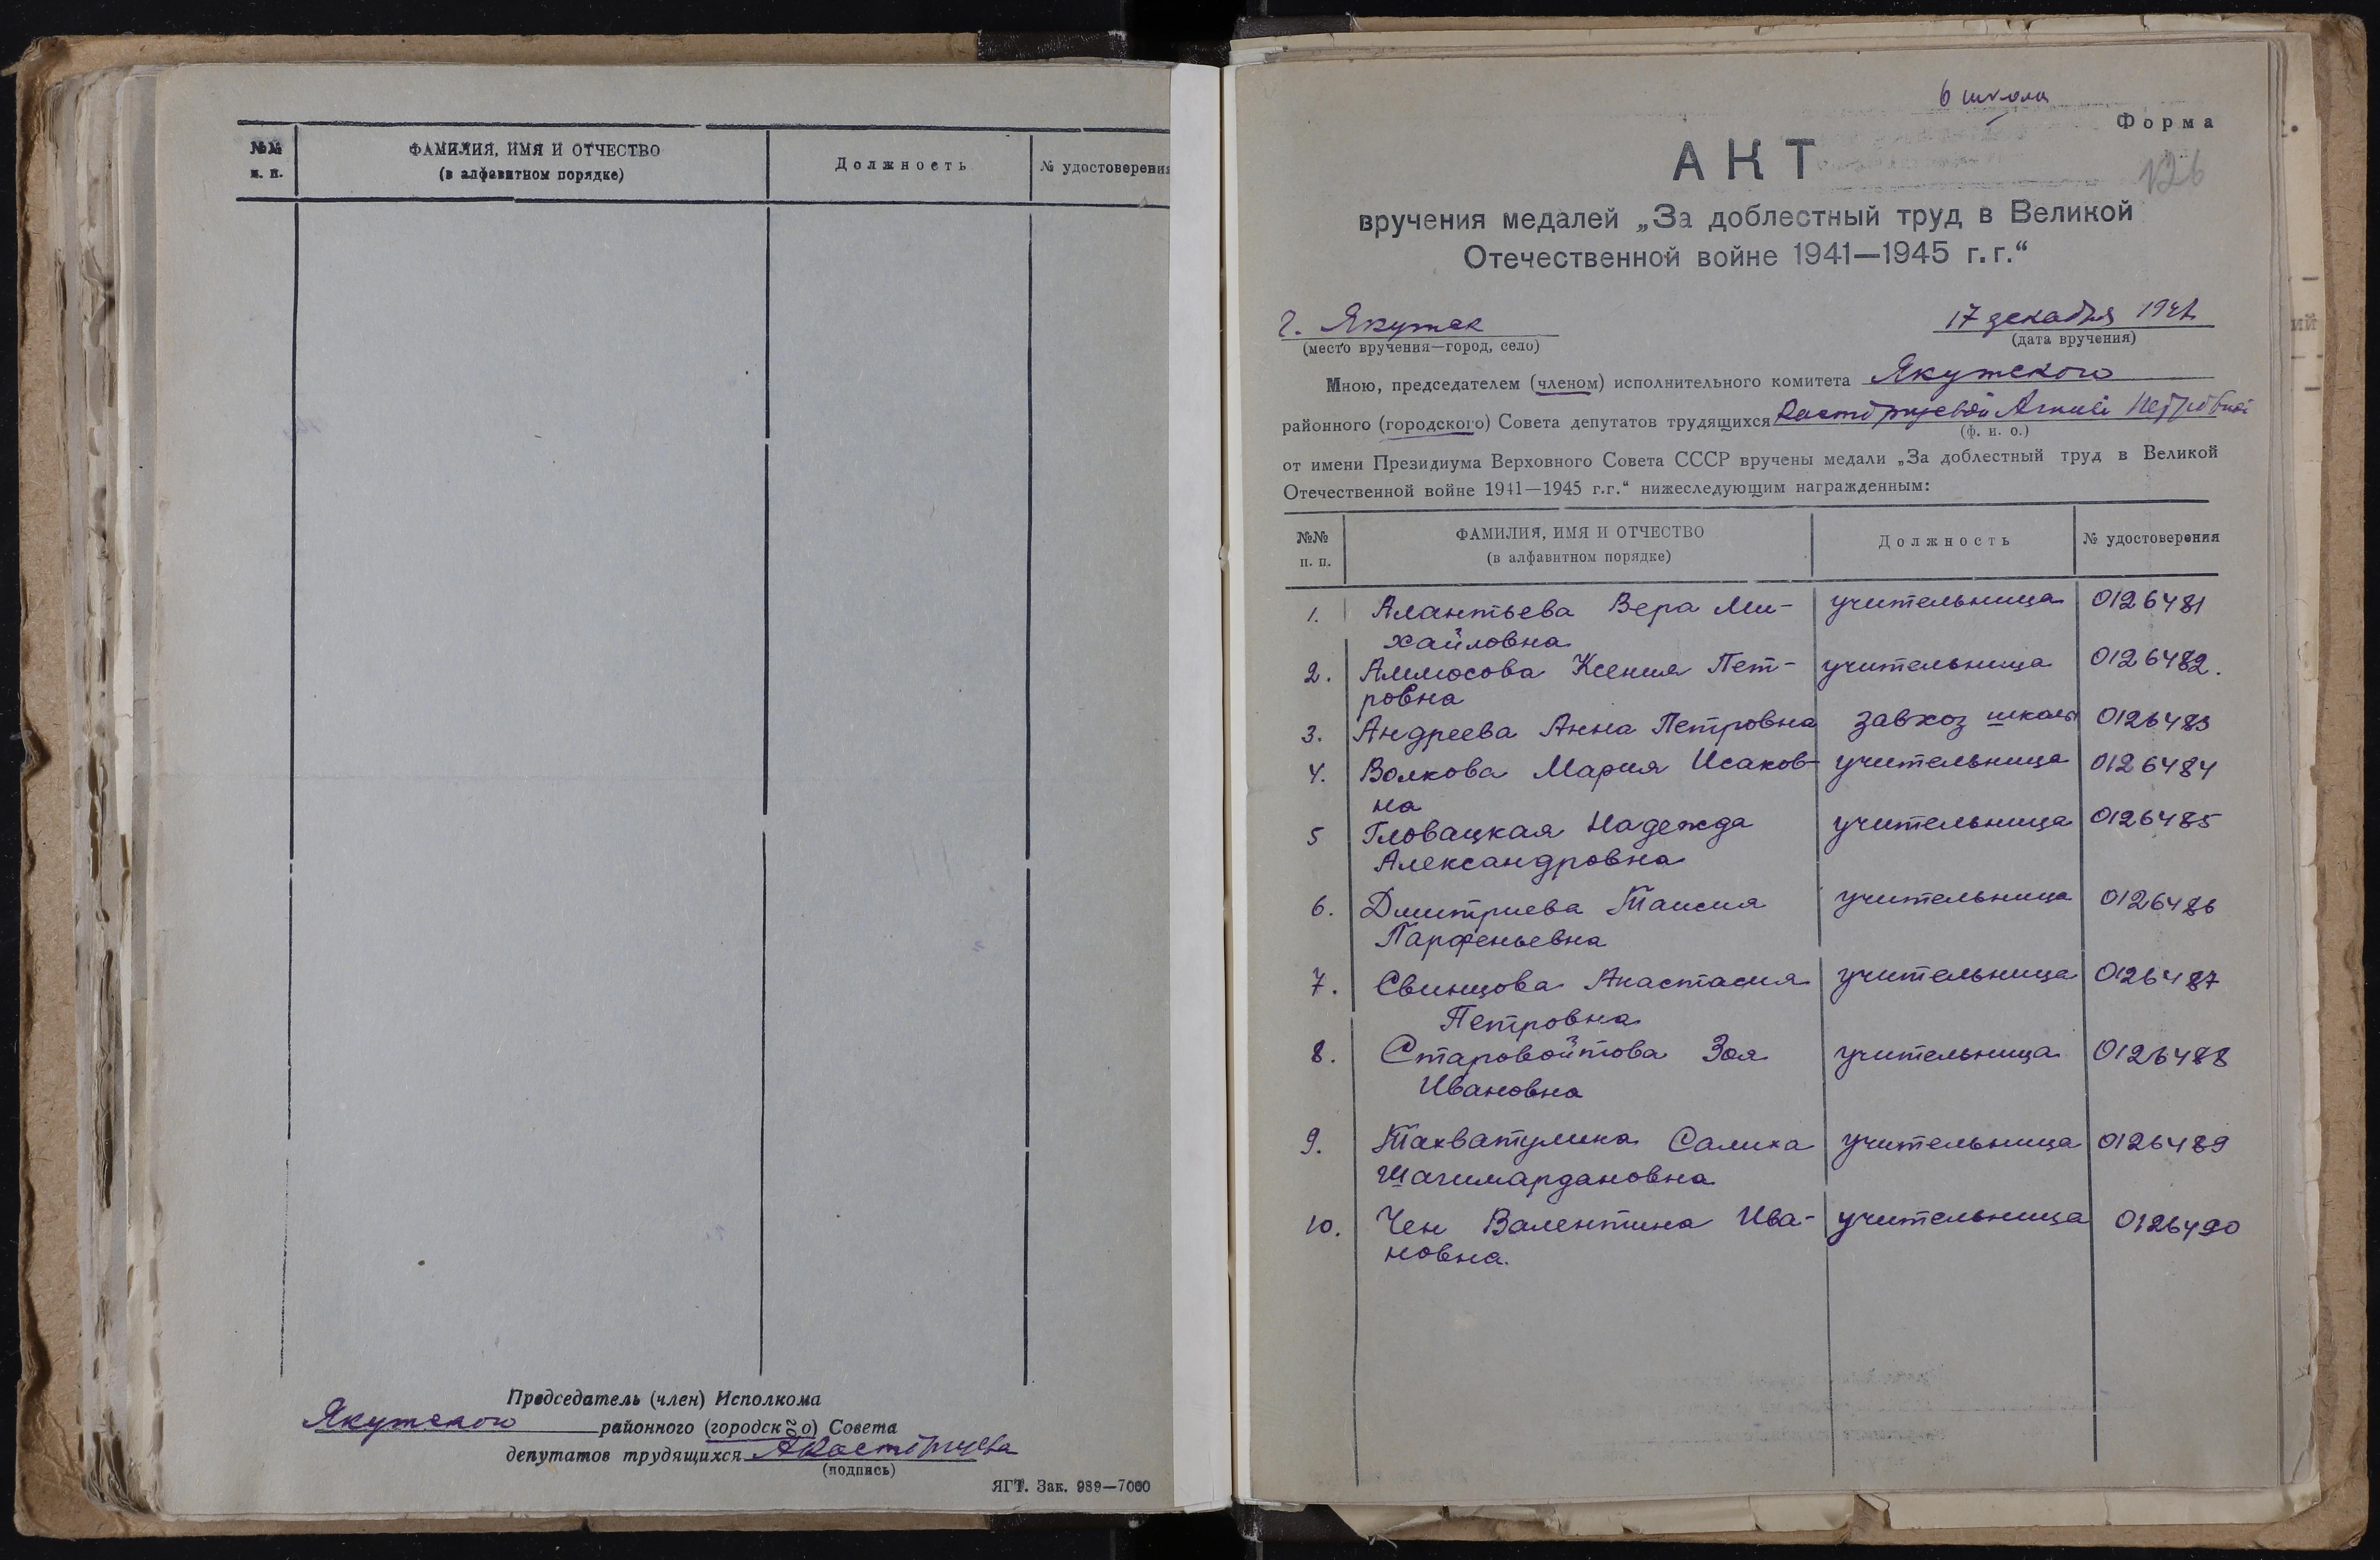 №№
п. п.
ФАМИЛИЯ, ИМЯ И ОТЧЕСТВО
(в алфавитном порядке)
Должность
№ удостоверения
Председатель (член) Исполкома
Якутского районного (городского) Совета
депутатов трудящихся
(подпись)
ЯГТ. Зак. 989—7000
6 школа
Форма
126
АКТ
вручения медалей „За доблестный труд в Великой
Отечественной войне 1941—1945 г.г.“
г. Якутск
17 декабря
(место вручения—город, село)
(дата вручения)
Мною, председателем (членом) исполнительного комитета Якутского
районного (городского) Совета депутатов трудящихся
(ф. и. о.)
от имени Президиума Верховного Совета СССР вручены медали „За доблестный труд в Великой
Отечественной войне 1941—1945 г.г.“ нижеследующим награжденным:
№№
п. п.
ФАМИЛИЯ, ИМЯ И ОТЧЕСТВО
(в алфавитном порядке)
Должность
№ удостоверения
1. Алантьева Вера Ми- учительница 0126481
хайловна
2. Аммосова Ксения Пет- учительница 0126482.
ровна
3. Андреева Анна Петровна завхоз школы 0126483
4. Волкова Мария Исаков- учительница 0126484
на
5 Гловацкая Надежда учительница 0126485
Александровна
6. Дмитриева Таисия учительница 0126486
Парфеньевна
7. Свинцова Анастасия учительница 0126487
Петровна
8. Старовойтова Зоя учительница 0126488
Ивановна
9. Тахватулина Салиха учительница 0126489
Шагимардановна
10. Чен Валентина Ива- учительница 0126490
новна.